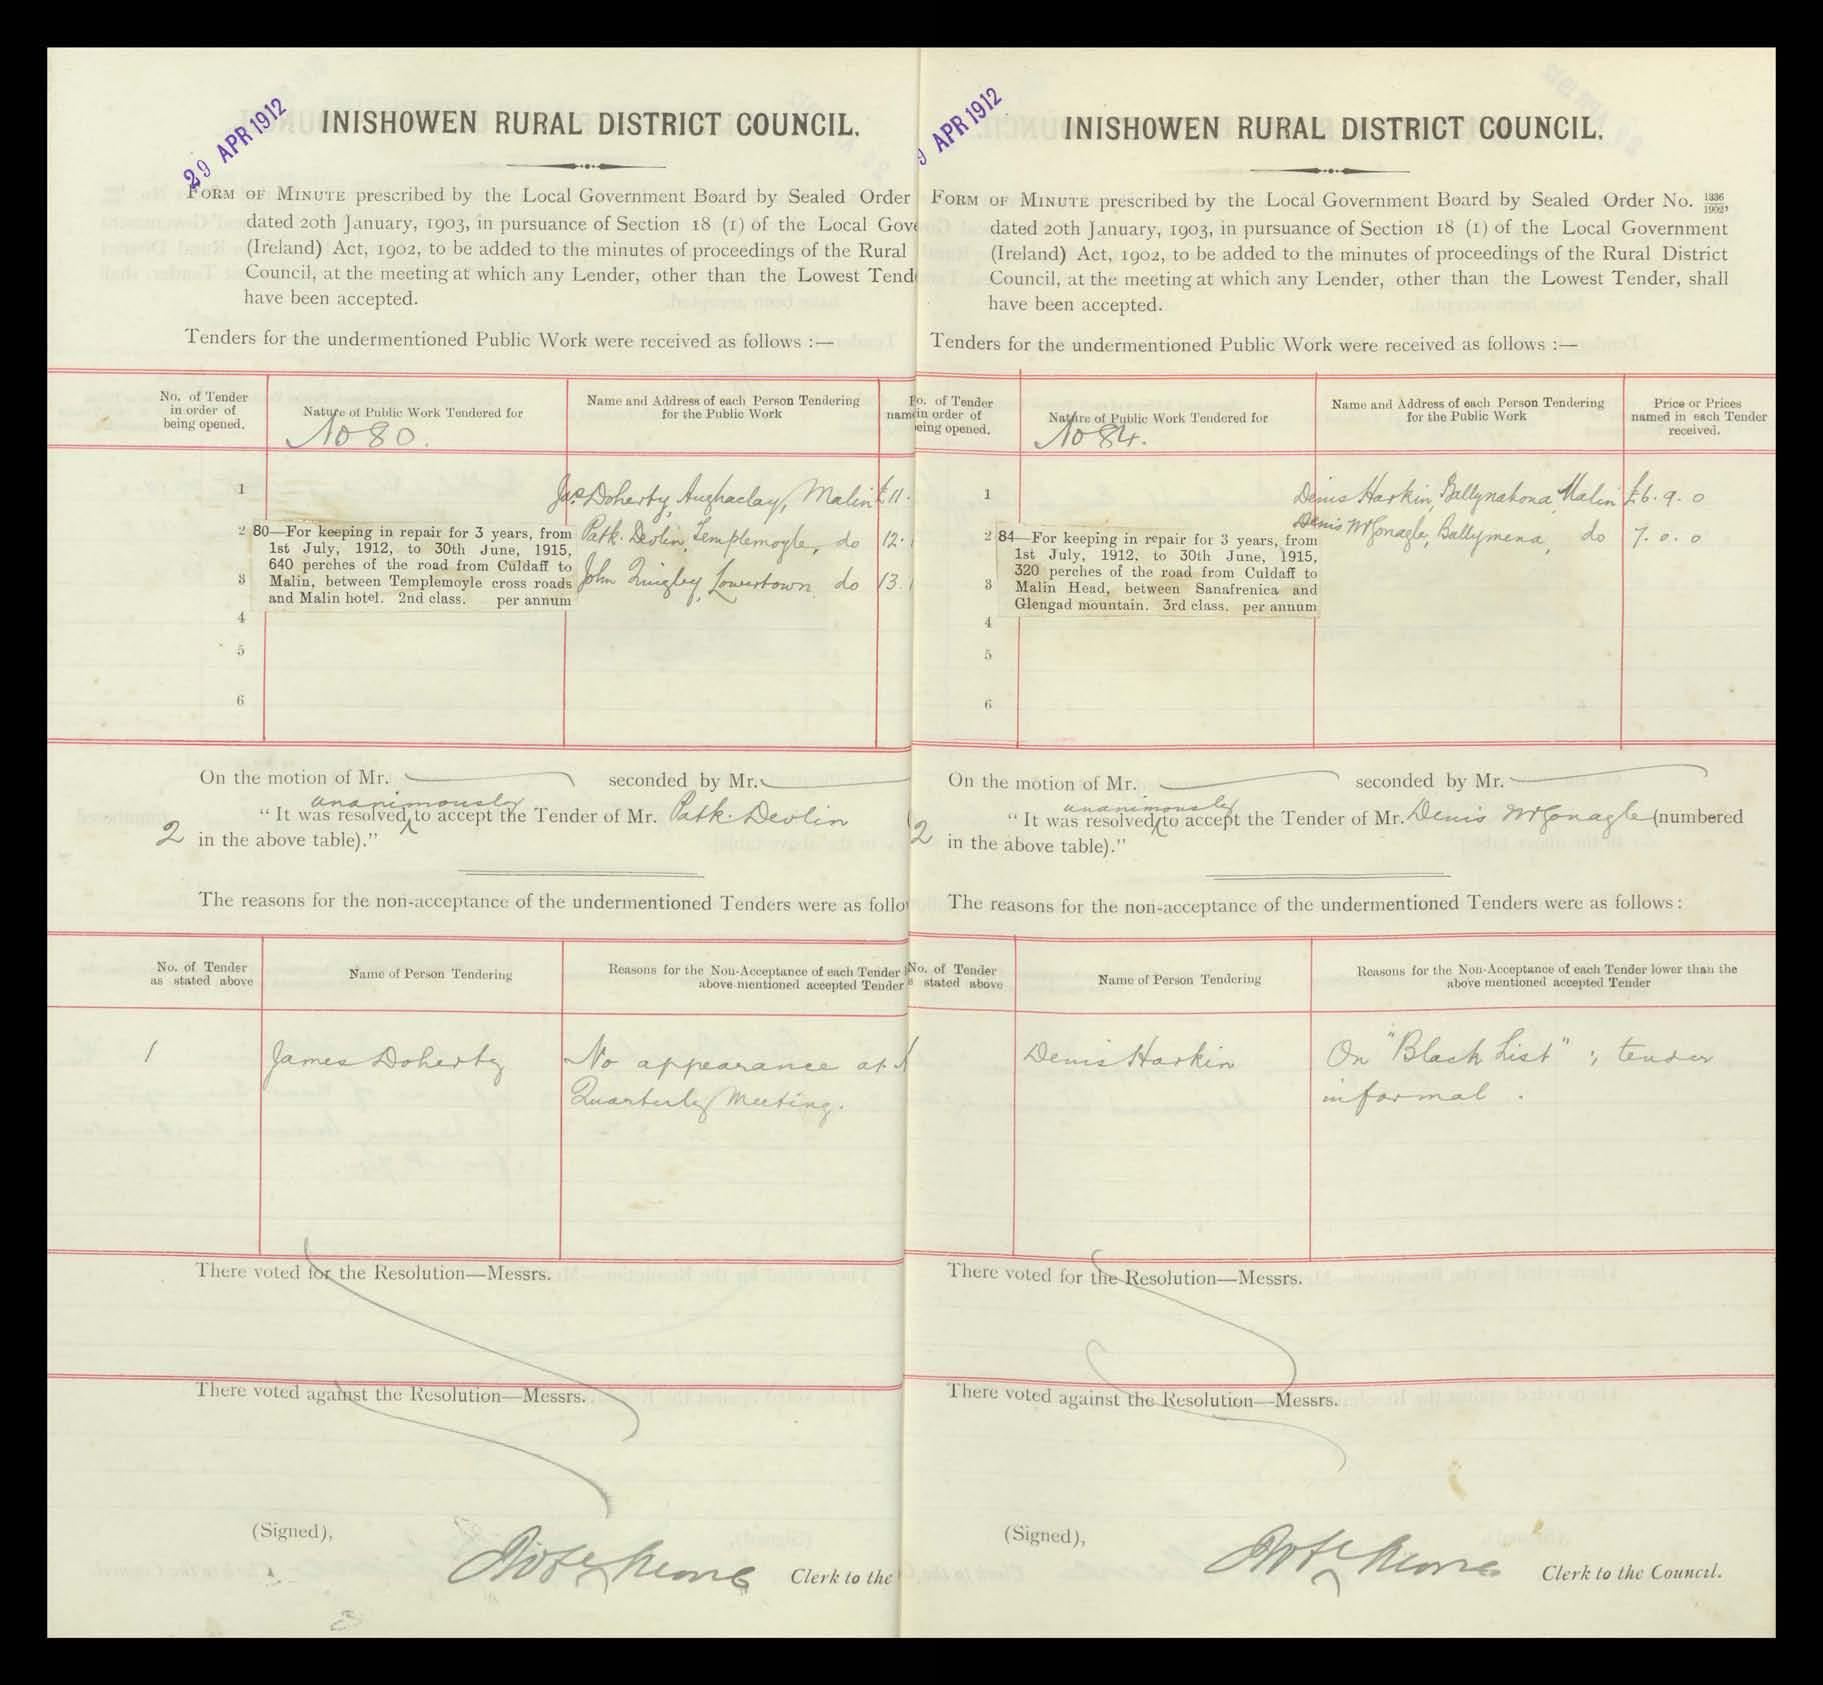 29 APR 1912
INISHOWEN RURAL DISTRICT COUNCIL.
FORM OF MINUTE prescribed by the Local Government Board by Sealed Order
dated 20th January, 1903, in pursuance of Section 18 (1) of the Local Gove
(Ireland) Act, 1902, to be added to the minutes of proceedings of the Rural
Council, at the meeting at which any Lender, other than the Lowest Tend
have been accepted.
Tenders for the undermentioned Public Work were received as follows :—
No. of Tender
in order of
being opened.
Nature of Public Work Tendered for
No 80.
Name and Address of each Person Tendering
for the Public Work
name
1
Jas. Doherty, Aughaclay, Malin £11.
2
80—For keeping in repair for 3 years, from
1st July, 1912, to 30th June, 1915,
640 perches of the road from Culdaff to
Malin, between Templemoyle cross roads
and Malin hotel. 2nd class. per annum
Patk. Devlin, Templemoyle, do 12.
3
John Quigley, Lowertown, do 13.
4
5
6
On the motion of Mr. seconded by Mr.
unanimously
" It was resolved to accept the Tender of Mr. Patk. Devlin
2 in the above table)."
The reasons for the non-acceptance of the undermentioned Tenders were as follo
No. of Tender
as stated above
Name of Person Tendering
Reasons for the Non-Acceptance of each Tender
above-mentioned accepted Tender
1 James Doherty No appearance at
Quarterly Meeting.
There voted for the Resolution—Messrs.
There voted against the Resolution—Messrs.
(Signed),
Clerk to the
9 APR 1912
INISHOWEN RURAL DISTRICT COUNCIL.
FORM OF MINUTE prescribed by the Local Government Board by Sealed Order No. 1336/1902,
dated 20th January, 1903, in pursuance of Section 18 (1) of the Local Government
(Ireland) Act, 1902, to be added to the minutes of proceedings of the Rural District
Council, at the meeting at which any Lender, other than the Lowest Tender, shall
have been accepted.
Tenders for the undermentioned Public Work were received as follows :—
o. of Tender
in order of
eing opened.
Nature of Public Work Tendered for
No 84.
Name and Address of each Person Tendering
for the Public Work
Price or Prices
named in each Tender
received.
1
Denis Harkin, Ballynahona, Malin £6. 9. 0
2
84—For keeping in repair for 3 years, from
1st July, 1912, to 30th June, 1915,
320 perches of the road from Culdaff to
Malin Head, between Sanafrenica and
Glengad mountain. 3rd class. per annum
Denis McGonagle, Ballymena, do 7. 0. 0
3
4
5
6
On the motion of Mr. seconded by Mr.
unanimously
" It was resolved to accept the Tender of Mr. Denis McGonagle (numbered
2 in the above table)."
The reasons for the non-acceptance of the undermentioned Tenders were as follows :
No. of Tender
s stated above
Name of Person Tendering
Reasons for the Non-Acceptance of each Tender lower than the
above mentioned accepted Tender
Denis Harkin On "Black List" ; tender
informal.
There voted for the Resolution—Messrs.
There voted against the Resolution—Messrs.
(Signed),
Clerk to the Council.